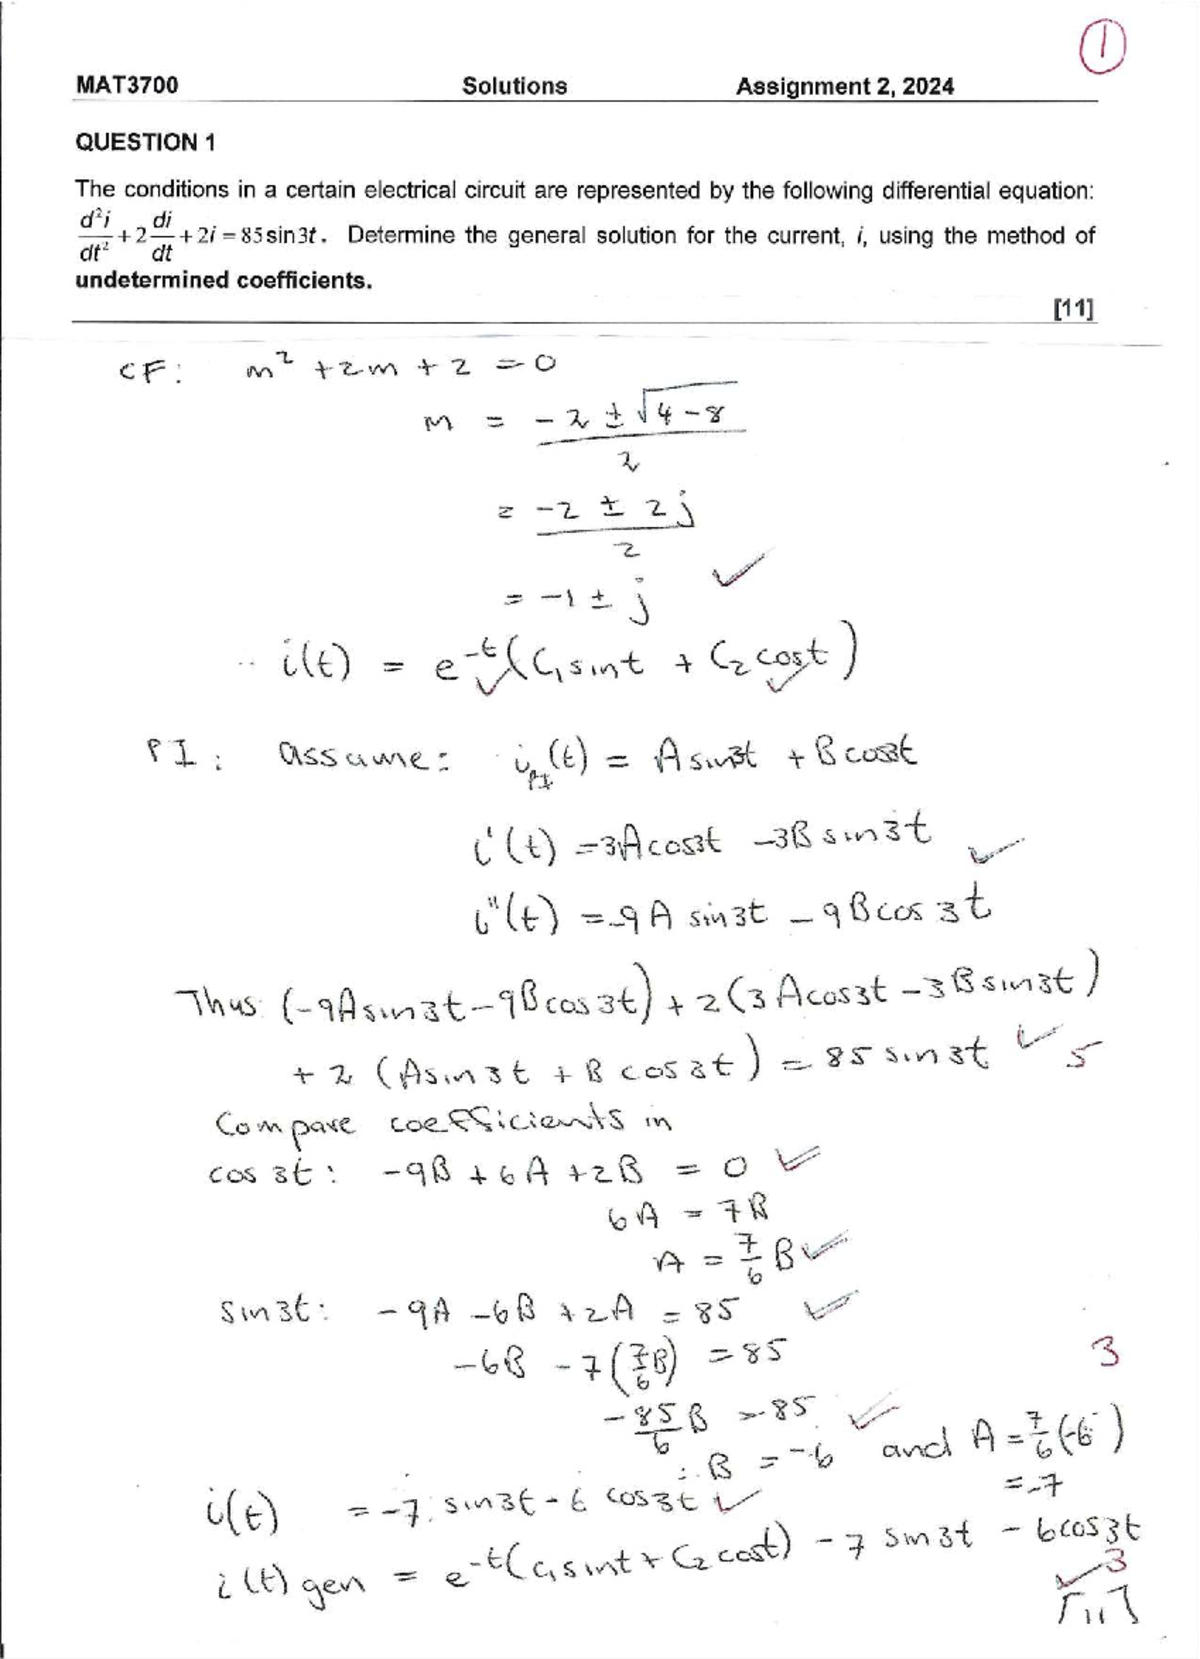 1
MAT3700 Solutions Assignment 2, 2024
QUESTION 1
The conditions in a certain electrical circuit are represented by the following differential equation:
d²i/dt² + 2 di/dt + 2i = 85 sin 3t. Determine the general solution for the current, i, using the method of
undetermined coefficients.
[11]
CF: m² + 2m + 2 = 0
m = (-2 ± √(4 - 8))/2
= (-2 ± 2j)/2
= -1 ± j ✓
∴ i(t) = e^-t (C₁ sin t + C₂ cos t) ✓ ✓
PI: assume: i_PI(t) = A sin3t + B cos3t
i'(t) = 3A cos3t - 3B sin3t ✓
i"(t) = -9A sin3t - 9B cos3t
Thus: (-9A sin3t - 9B cos3t) + 2(3A cos3t - 3B sin3t)
+ 2 (A sin3t + B cos3t) = 85 sin3t ✓ 5
Compare coefficients in
cos 3t: -9B + 6A + 2B = 0 ✓
6A = 7B
A = 7/6 B ✓
Sin3t: -9A - 6B + 2A = 85 ✓
-6B - 7(7/6 B) = 85 3
-85/6 B = 85 ✓
∴ B = -6 and A = 7/6 (-6)
= -7
i(t) = -7 sin3t - 6 cos3t ✓
i(t) gen = e^-t (C₁ sin t + C₂ cos t) - 7 sin3t - 6cos3t
✓ 3
[11]